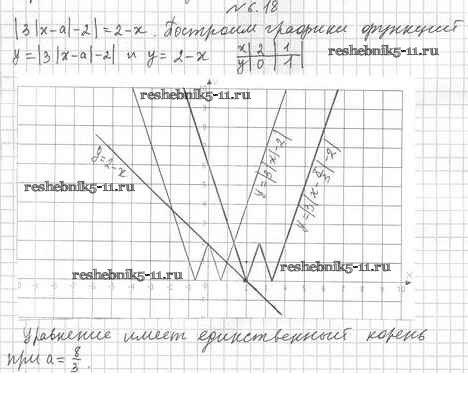 №6.18
|3|x-a|-2|=2-x. Построим графики функций
y=|3|x-a|-2| и y=2-x x|2|1| y|0|1| reshebnik5-11.ru
reshebnik5-11.ru
y=2-x
y=|3|x|-2|
y=|3|x-8/3|-2|
reshebnik5-11.ru
reshebnik5-11.ru
reshebnik5-11.ru
x
Уравнение имеет единственный корень
при a=8/3.